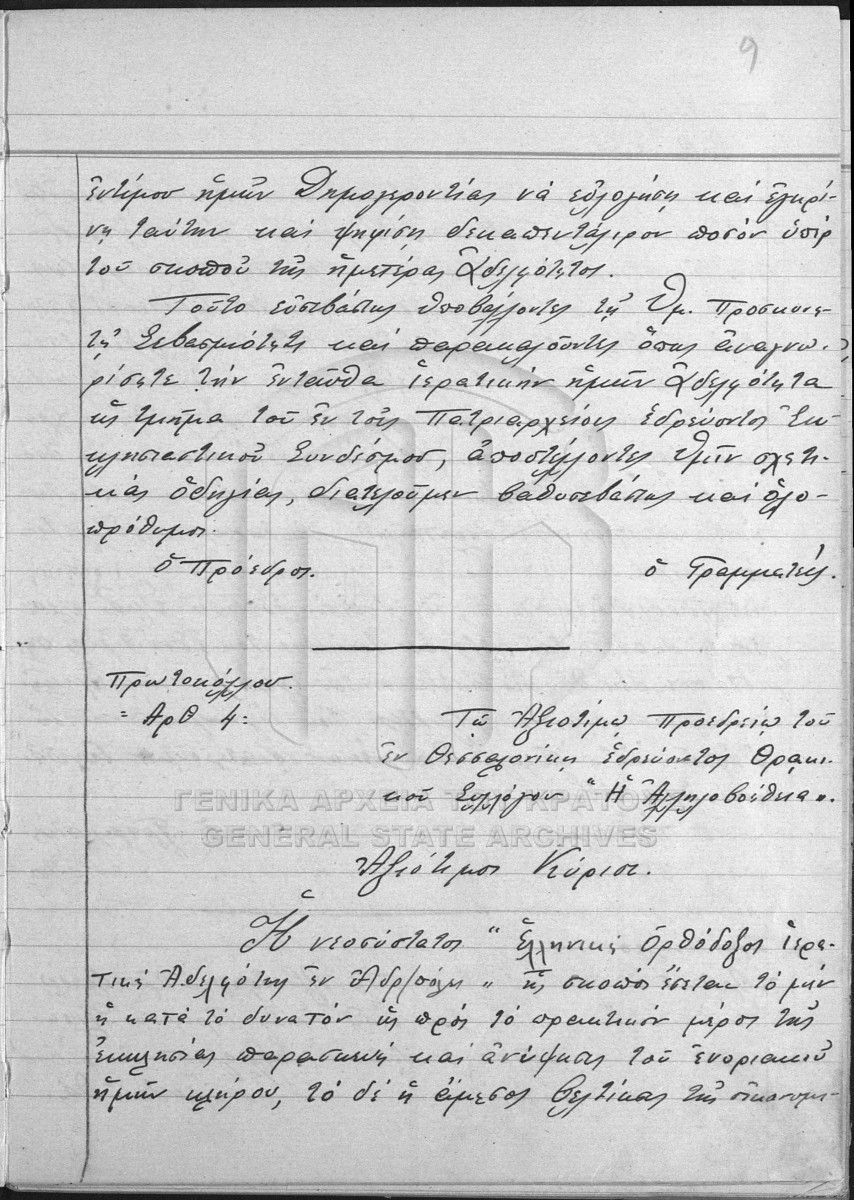 9
ἐντίμου ἡμῶν Δημογεροντίας νὰ εὐλογήσῃ καὶ ἐγκρί-
νῃ ταύτην καὶ ψηφίσῃ δεκαπεντάλιρον ποσὸν ὑπὲρ
τοῦ σκοποῦ τῆς ἡμετέρας Ἀδελφότητος.
Τοῦτο εὐσεβάστως ὑποβάλλοντες τῇ Ὑμ. Προσκυνη-
τῇ Σεβασμιότητι καὶ παρακαλοῦντες ὅπως ἀναγνω-
ρίσητε τὴν ἐνταῦθα ἱερατικὴν ἡμῶν Ἀδελφότητα
ὡς τμῆμα τοῦ ἐν τοῖς Πατριαρχείοις ἑδρεύοντος Ἐκ-
κλησιαστικοῦ Συνδέσμου, ἀποστέλλοντες ὑμῖν σχετι-
κὰς ὁδηγίας, διατελοῦμεν βαθυσεβάστως καὶ ὁλο-
πρόθυμοι.
ὁ Πρόεδρος. ὁ Γραμματεύς.
Πρωτοκόλλου.
Ἀρθ 4:
Τῷ Ἀξιοτίμῳ Προεδρείῳ τοῦ
ἐν Θεσσαλονίκῃ ἑδρεύοντος Θρακι-
κοῦ Συλλόγου "Ἡ Ἀλληλοβοήθεια".
ΓΕΝΙΚΑ ΑΡΧΕΙΑ ΤΟΥ ΚΡΑΤΟΥΣ
GENERAL STATE ARCHIVES
Ἀξιότιμοι Κύριοι.
Ἡ νεοσύστατος "Ἑλληνικὴ Ὀρθόδοξος ἱερα-
τικὴ Ἀδελφότης ἐν Ἀδρ/πόλει" ἧς σκοπὸς ἔσεται τὸ μὲν
ἡ κατὰ τὸ δυνατὸν ὡς πρὸς τὸ πρακτικὸν μέρος τῆς
ἐκκλησίας παρασκευὴ καὶ ἀνύψωσις τοῦ ἐνοριακοῦ
ἡμῶν κλήρου, τὸ δὲ ἡ ἄμεσος βελτίωσις τῆς οἰκονομι-